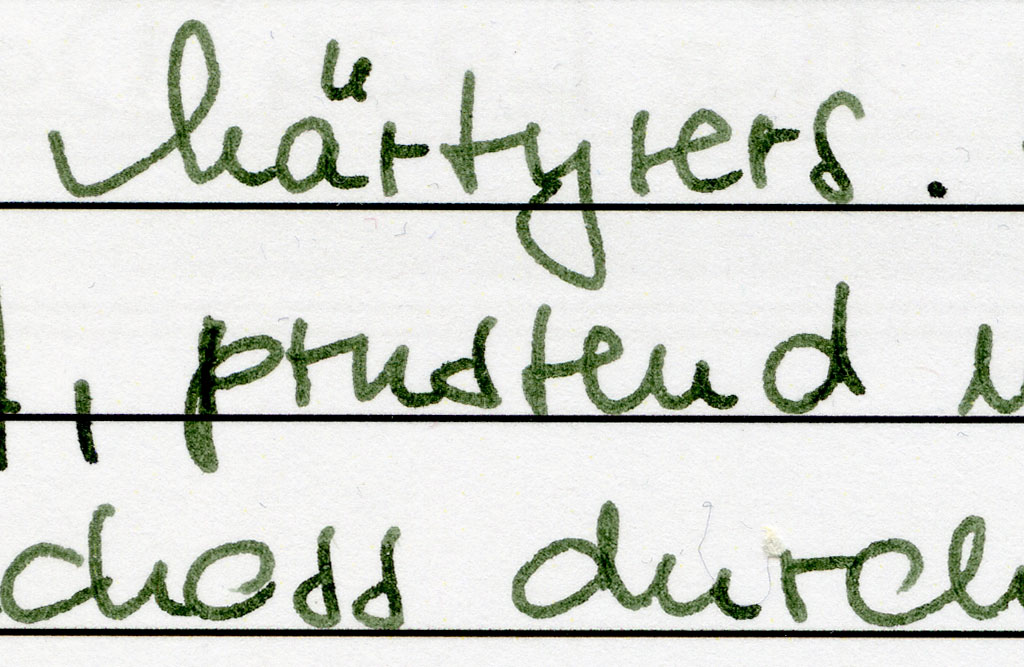 Märtyrers.
, prustend
choss durch